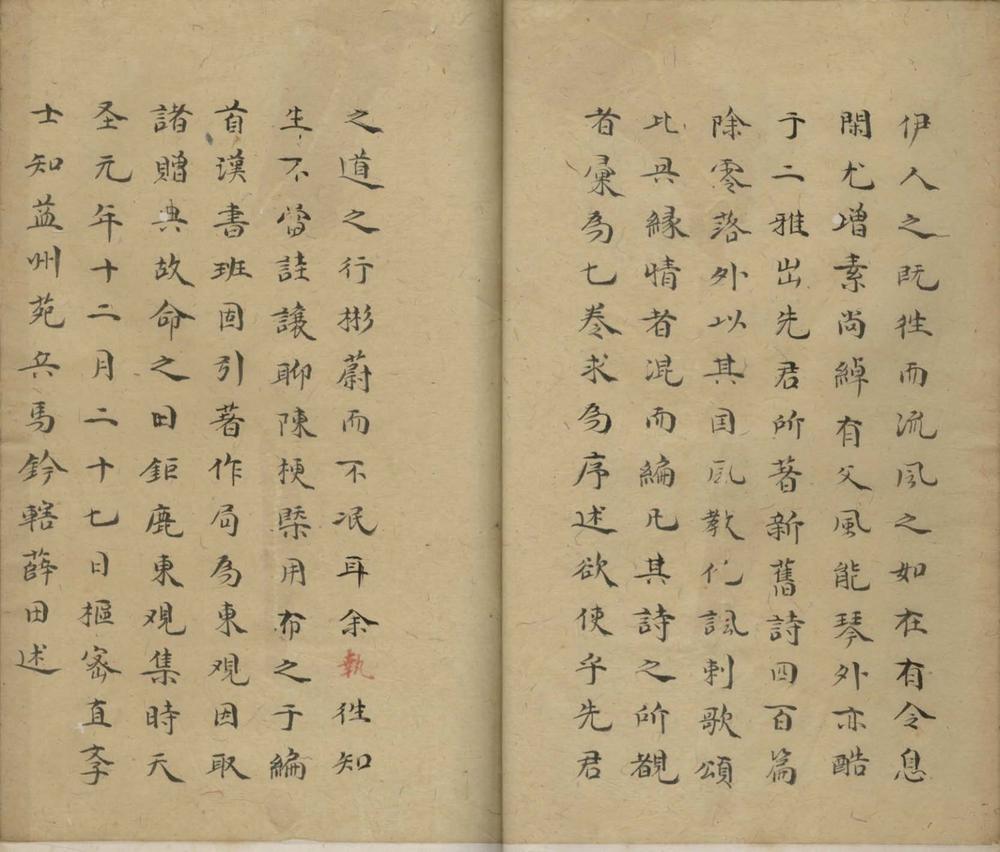 伊人之既徃而流風之如在有令息
閑尤增素尚綽有父風能琴外亦酷
于二雅出先君所著新舊詩四百篇
除零落外以其国風教化諷刺歌頌
比具縁情者混而編凡其詩之所覩
者彙為七卷求為序述欲使乎先君
之道之行彬蔚而不泯耳余執徃知
生不當諠讓聊陳梗槩用布之于編
首漢書班固引著作局為東观因取
諸贈典故命之曰鉅鹿東观集時天
圣元年十二月二十七日樞宻直孝
士知益州苑兵馬鈐轄薛田述